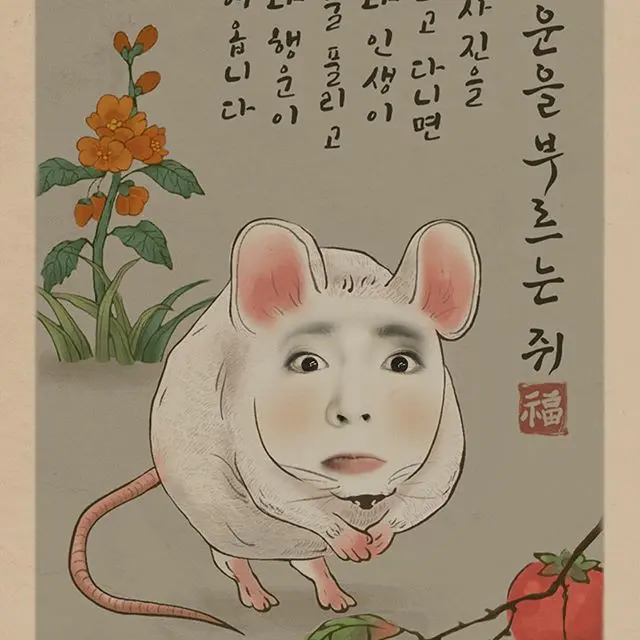 운을 부르는 쥐
福
사진을
고 다니면
인생이
풀리고
행운이
옵니다